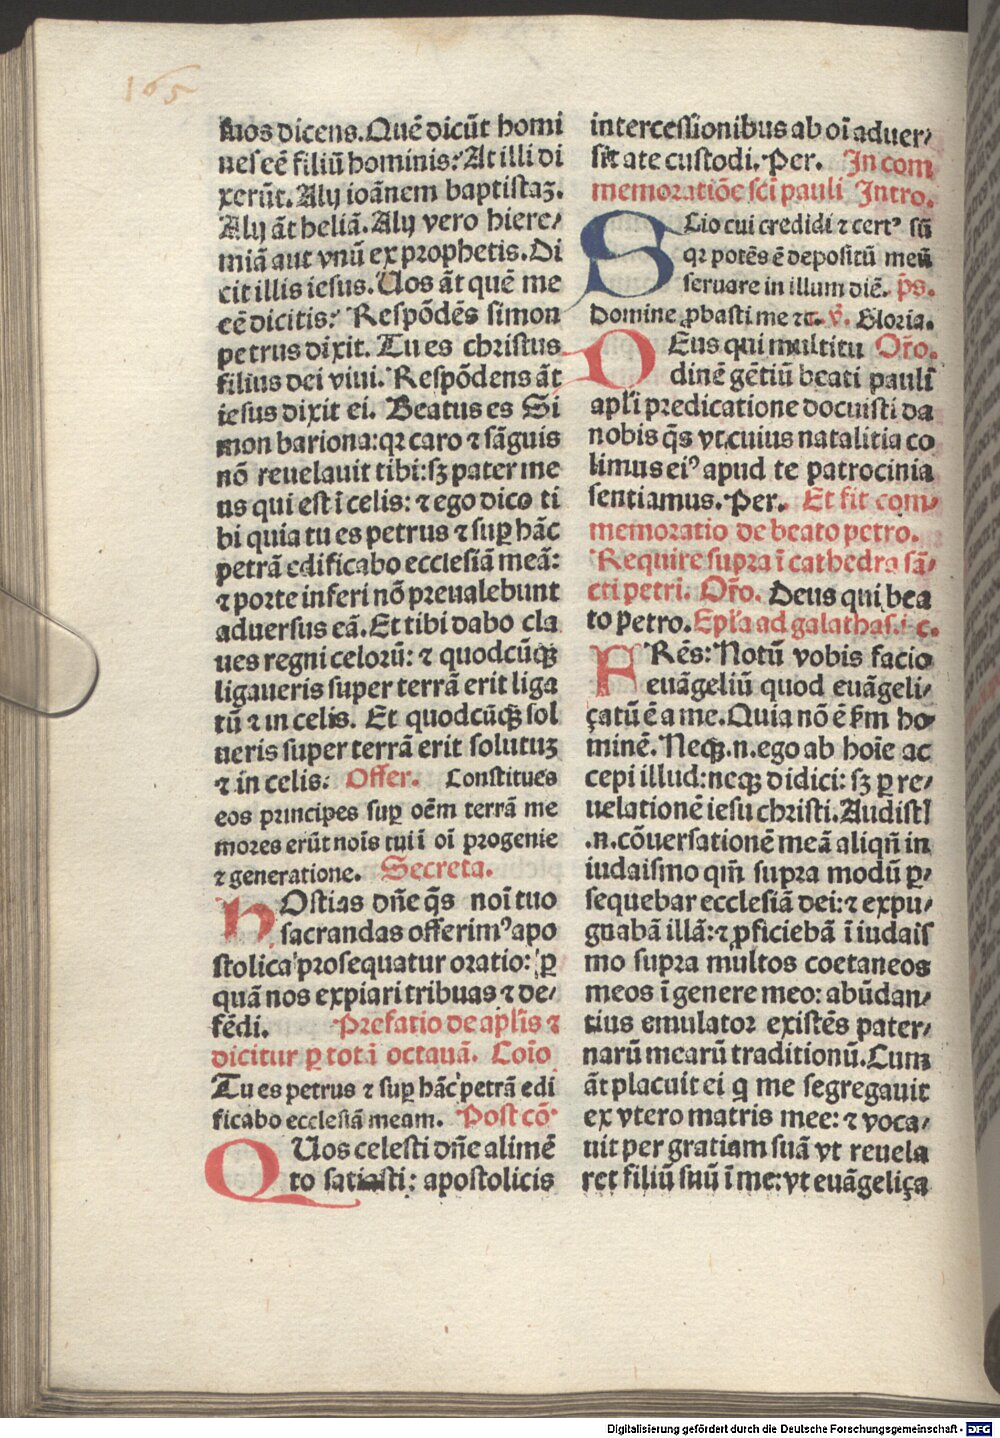 165
suos dicens. Quē dicūt homi
nes eē filiū hominis: At illi di
xerūt. Alij ioānem baptistaꝫ.
Alij āt heliā. Alij vero hiere⸗
miā aut vnū ex prophetis. Di
cit illis iesus. Uos āt quē me
eē dicitis: Respōdēs simon
petrus dixit. Tu es christus
filius dei viui. Respōdens āt
iesus dixit ei. Beatus es Si
mon bariona: qꝛ caro ⁊ sāguis
nō reuelauit tibi: sꝫ pater me
us qui est ī celis: ⁊ ego dico ti
bi quia tu es petrus ⁊ suꝑ hāc
petrā edificabo ecclesiā meā:
⁊ porte inferi nō preualebunt
aduersus eā. Et tibi dabo cla
ues regni celorū: ⁊ quodcūqꝫ
ligaueris super terrā erit liga
tū ⁊ in celis. Et quodcūqꝫ sol
ueris super terrā erit solutuꝫ
⁊ in celis. Offer. Constitues
eos principes suꝑ oēm terrā me
mores erūt noīs tui ī oī progenie
⁊ generatione. Secreta.
HOstias dn̄e q̄s noī tuo
sacrandas offerimꝰ apo
stolica prosequatur oratio: ꝑ
quā nos expiari tribuas ⁊ de⸗
fēdi. Prefatio de apl̄is ⁊
dicitur ꝑ totā octauā. Coīo
Tu es petrus ⁊ suꝑ hāc petrā edi
ficabo ecclesiā meam. Post cō
QUos celesti dn̄e alimē
to satiasti: apostolicis
intercessionibus ab oī aduer⸗
sitate custodi. Per. In com
memoratiōe sc̄i pauli Intro.
SCio cui credidi ⁊ certꝰ sū
qꝛ potēs ē depositū meū
seruare in illum diē. p̄s.
Domine ꝓbasti me ⁊c. v̄. Gloria.
DEus qui multitu Or̄o.
dinē gētiū beati pauli
apl̄i predicatione docuisti da
nobis q̄s vt cuius natalitia co
limus eiꝰ apud te patrocinia
sentiamus. Per. Et fit com⸗
memoratio de beato petro.
Require supra ī cathedra sā⸗
cti petri. Or̄o. Deus qui bea
to petro. Epl̄a ad galathas. i c.
FRēs: Notū vobis facio
euāgeliū quod euāgeli⸗
çatū ē a me. Quia nō ē s̄m ho⸗
minē. Neqꝫ .n. ego ab hoīe ac
cepi illud: neqꝫ didici: sꝫ ꝑ re⸗
uelationē iesu christi. Audistī
.n. cōuersationē meā aliqn̄ in
iudaismo qm̄ supra modū ꝑ⸗
sequebar ecclesiā dei: ⁊ expu⸗
gnabā illā: ⁊ ꝓficiebā ī iudais
mo supra multos coetaneos
meos ī genere meo: abūdan⸗
tius emulator existēs pater⸗
narū mearū traditionū. Cum
āt placuit ei q me segregauit
ex vtero matris mee: ⁊ voca⸗
uit per gratiam suā vt reuela
ret filiū suū ī me: vt euāgeliça
Digitalisierung gefördert durch die Deutsche Forschungsgemeinschaft - DFG